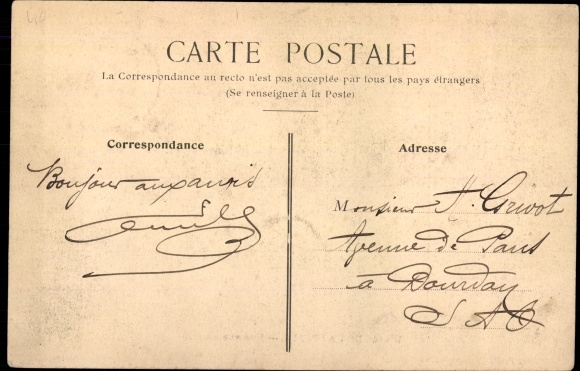 CARTE POSTALE
La Correspondance au recto n'est pas acceptée par tous les pays étrangers
(Se renseigner à la Poste)
Correspondance
Bonjour aux amis
Adresse
Monsieur H. Grivot
Avenue de Paris
à Dourdan
S & O